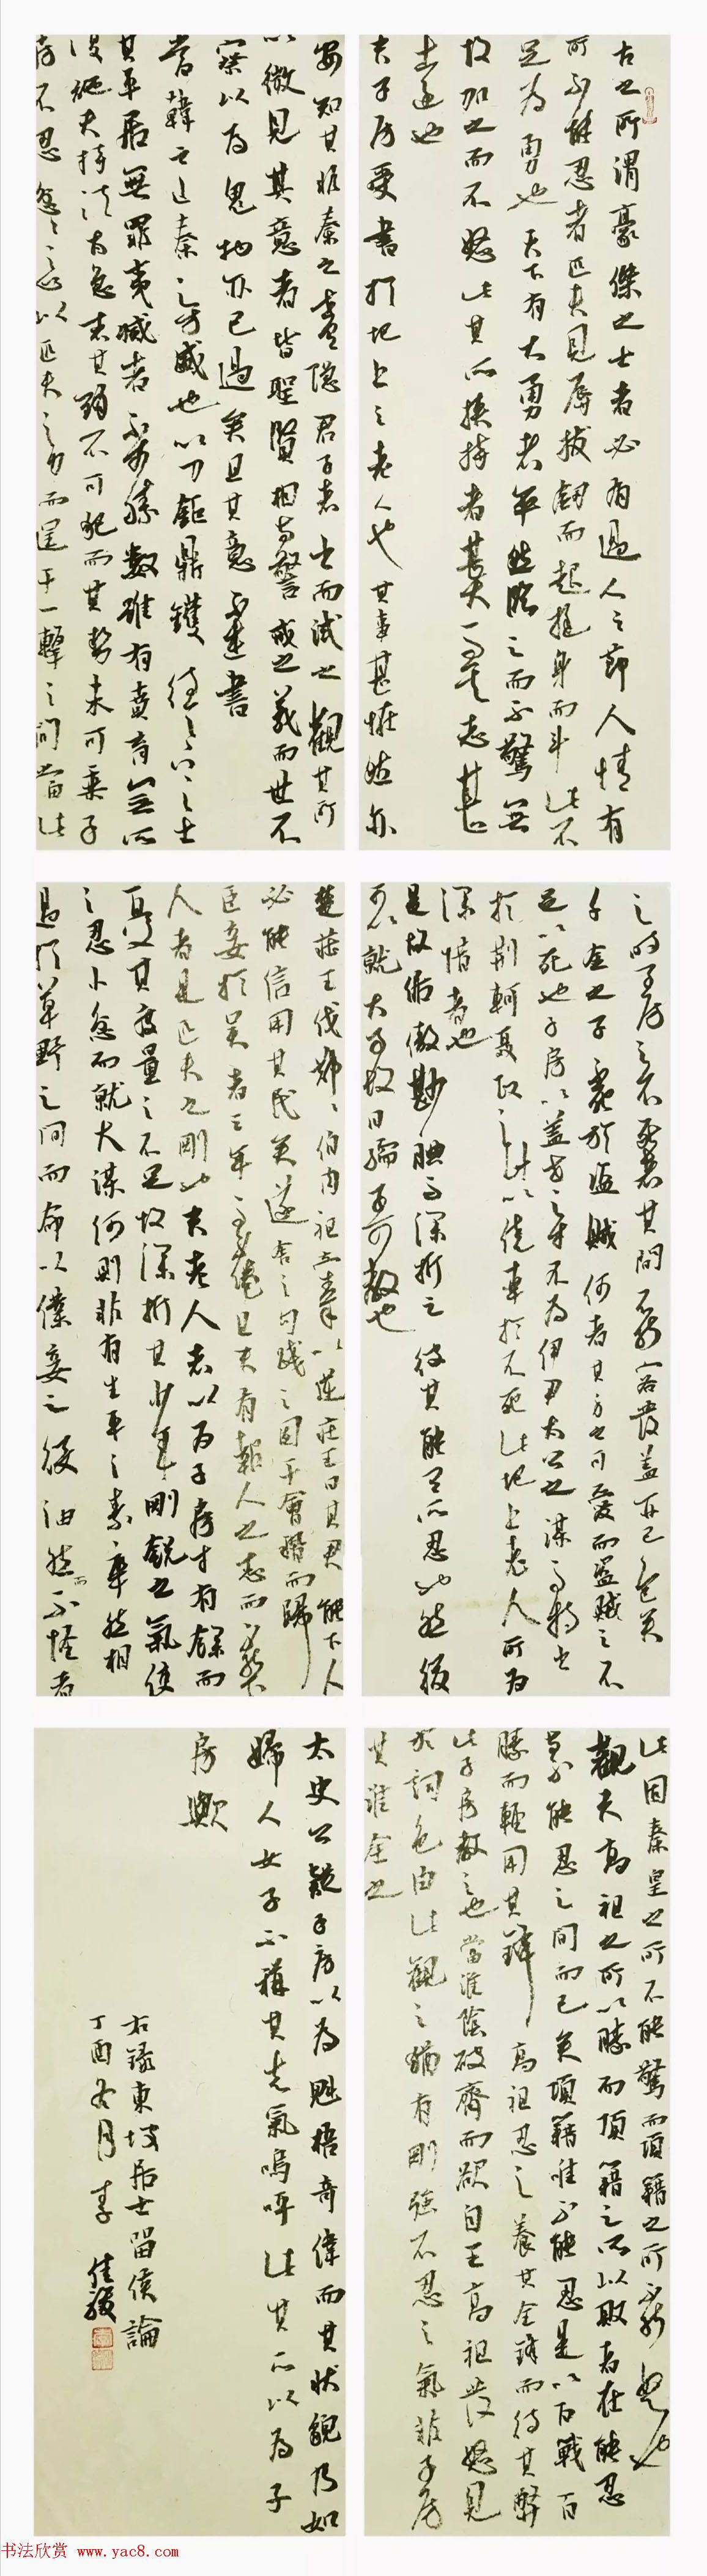 古之所謂豪傑之士者必有過人之節人情有
所不能忍者匹夫見辱拔劍而起挺身而斗此不
足為勇也天下有大勇者卒然臨之而不驚無
故加之而不怒此其所挾持者甚大而其志甚
遠也
夫子房受書於圯上之老人也其事甚怪然亦
安知其非秦之世有隱君子者出而試之觀其所
以微見其意者皆聖賢相與警戒之義而世不
察以為鬼物亦已過矣且其意不在書
當韓之亡秦之方盛也以刀鋸鼎鑊待天下之士
其平居無罪夷滅者不可勝數雖有賁育無所
復施夫持法太急者其鋒不可犯而其勢未可乘子
房不忍忿忿之心以匹夫之力而逞于一擊之間當此
之時子房之不死者其間不能容髮蓋亦已危矣
千金之子不死於盜賊何者其身之可愛而盜賊之不
足以死也子房以蓋世之才不為伊尹太公之謀而特出
於荊軻聶政之計以僥幸於不死此圯上老人所為
深惜者也
是故倨傲鮮腆而深折之彼其能有所忍也然後
可以就大事故曰孺子可教也
楚莊王伐鄭鄭伯肉袒牽羊以迎莊王曰其君能下人
必能信用其民矣遂舍之句踐之困于會稽而歸
臣妾於吳者三年而不倦且夫有報人之志而不能下
人者是匹夫之剛也夫老人者以為子房才有餘而
憂其度量之不足故深折其少年剛銳之氣使
之忍小忿而就大謀何則非有生平之素卒然相
遇於草野之間而命以僕妾之役油然而不怪者
此固秦皇之所不能驚而項籍之所不能怒也
觀夫高祖之所以勝而項籍之所以敗者在能忍
與不能忍之間而已矣項籍唯不能忍是以百戰百
勝而輕用其鋒高祖忍之養其全鋒而待其弊
此子房教之也當淮陰破齊而欲自王高祖發怒見
於詞色由此觀之猶有剛強不忍之氣非子房
其誰全之
太史公疑子房以為魁梧奇偉而其狀貌乃如
婦人女子不稱其志氣嗚呼此其所以為子
房歟
右錄東坡居士留侯論
丁酉冬月李佳駿
书法欣赏 www.yac8.com